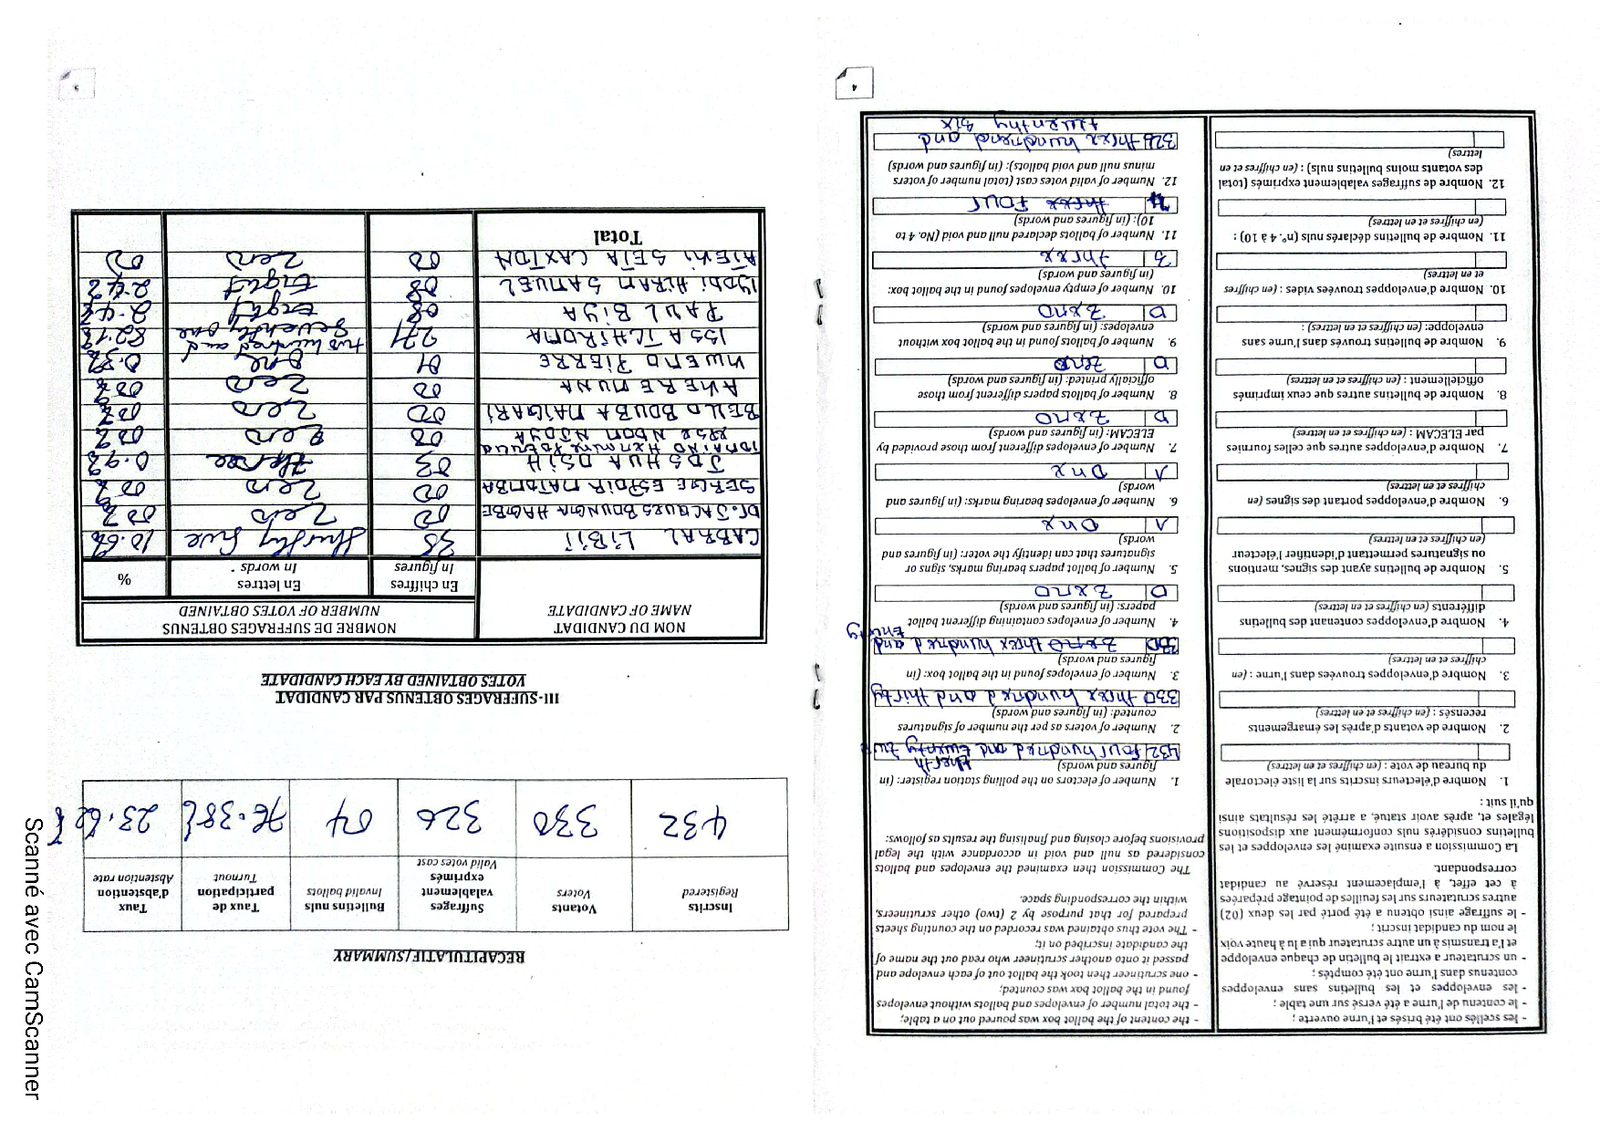 4
- les scellés ont été brisés et l'urne ouverte ;
- le contenu de l'urne a été versé sur une table ;
- les enveloppes et les bulletins sans enveloppes
contenus dans l'urne ont été comptés ;
- un scrutateur a extrait le bulletin de chaque enveloppe
et l'a transmis à un autre scrutateur qui a lu à haute voix
le nom du candidat inscrit ;
- le suffrage ainsi obtenu a été porté par les deux (02)
autres scrutateurs sur les feuilles de pointage préparées
à cet effet, à l'emplacement réservé au candidat
correspondant.
La Commission a ensuite examiné les enveloppes et les
bulletins considérés nuls conformément aux dispositions
légales et, après avoir statué, a arrêté les résultats ainsi
qu'il suit :
1. Nombre d'électeurs inscrits sur la liste électorale
du bureau de vote : (en chiffres et en lettres)
2. Nombre de votants d'après les émargements
recensés : (en chiffres et en lettres)
3. Nombre d'enveloppes trouvées dans l'urne : (en
chiffres et en lettres)
4. Nombre d'enveloppes contenant des bulletins
différents (en chiffres et en lettres)
5. Nombre de bulletins ayant des signes, mentions
ou signatures permettant d'identifier l'électeur
(en chiffres et en lettres)
6. Nombre d'enveloppes portant des signes (en
chiffres et en lettres)
7. Nombre d'enveloppes autres que celles fournies
par ELECAM : (en chiffres et en lettres)
8. Nombre de bulletins autres que ceux imprimés
officiellement : (en chiffres et en lettres)
9. Nombre de bulletins trouvés dans l'urne sans
enveloppe: (en chiffres et en lettres) :
10. Nombre d'enveloppes trouvées vides : (en chiffres
et en lettres)
11. Nombre de bulletins déclarés nuls (n°. 4 à 10) :
(en chiffres et en lettres)
12. Nombre de suffrages valablement exprimés (total
des votants moins bulletins nuls) : (en chiffres et en
lettres)
- the content of the ballot box was poured out on a table;
- the total number of envelopes and ballots without envelopes
found in the ballot box was counted;
- one scrutineer then took the ballot out of each envelope and
passed it onto another scrutineer who read out the name of
the candidate inscribed on it;
- The vote thus obtained was recorded on the counting sheets
prepared for that purpose by 2 (two) other scrutineers,
within the corresponding space.
The Commission then examined the envelopes and ballots
considered as null and void in accordance with the legal
provisions before closing and finalising the results as follows:
1. Number of electors on the polling station register: (in
figures and words)
432 four hundred and twenty two
2. Number of voters as per the number of signatures
counted: (in figures and words)
330 three hundred and thirty
3. Number of envelopes found in the ballot box: (in
figures and words)
330 Zero three hundred and
4. Number of envelopes containing different ballot
papers: (in figures and words)
0 Zero
5. Number of ballot papers bearing marks, signs or
signatures that can identify the voter: (in figures and
words)
1 One
6. Number of envelopes bearing marks: (in figures and
words)
1 One
7. Number of envelopes different from those provided by
ELECAM: (in figures and words)
0 Zero
8. Number of ballots papers different from those
officially printed: (in figures and words)
0 Zero
9. Number of ballots found in the ballot box without
envelopes: (in figures and words)
0 Zero
10. Number of empty envelopes found in the ballot box:
(in figures and words)
3 three
11. Number of ballots declared null and void (No. 4 to
10): (in figures and words)
4 three FOUR
12. Number of valid votes cast (total number of voters
minus null and void ballots): (in figures and words)
326 three hundrend and
twenthy six
5
RECAPITULATIF/SUMMARY
Inscrits Registered
Votants Voters
Suffrages valablement exprimés Valid votes cast
Bulletins nuls Invalid ballots
Taux de participation Turnout
Taux d'abstention Abstention rate
432 330 326 04 76.38% 23.62%
III-SUFFRAGES OBTENUS PAR CANDIDAT
VOTES OBTAINED BY EACH CANDIDATE
NOM DU CANDIDAT
NAME OF CANDIDATE
NOMBRE DE SUFFRAGES OBTENUS
NUMBER OF VOTES OBTAINED
En chiffres In figures
En lettres In words
%
CABRAL LIBII 35 thirty five
Dr. JACQUES BOUNGHA HAGBE 00 Zero
SERGE ESPOIR MATOMBA 00 Zero
JOSHUA OSIH 03 three
TOMAINO HERMINE PATRICIA
epse NDAM NJOYA 00 Zero
BELLO BOUBA MAIGARI 00 Zero
AKERE MUNA 00 Zero
KWEMO PIERRE 01 One
ISSA TCHIROMA 271 two hundred and
Seventy one
PAUL BIYA 08 Eight
IYODI HIRAM SAMUEL 08 Eight
ATEKI SETA CAXTON 00 Zero
Total
Scanné avec CamScanner